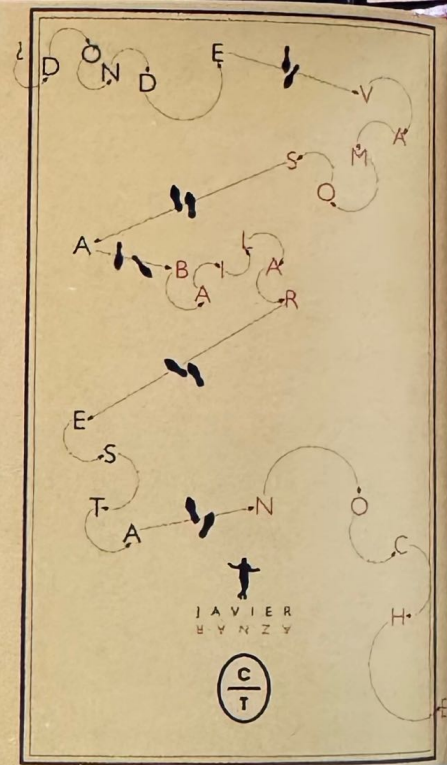 ¿DONDE VAMOS
A BAILAR
ESTA NOCHE
JAVIER
ARANZA
C
T